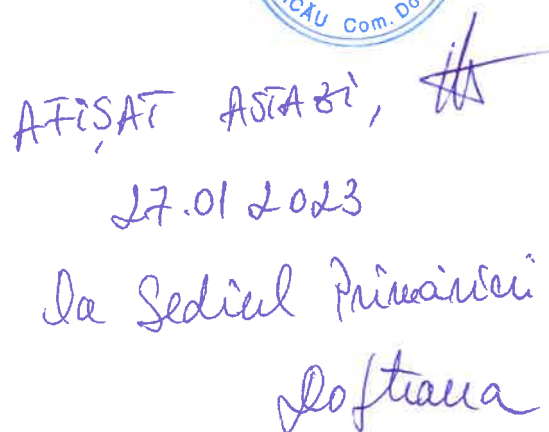 CĂU Com. Do
AFIȘAT ASTAZI,
27.01 2023
la Sediul Primăriei
Dofteana